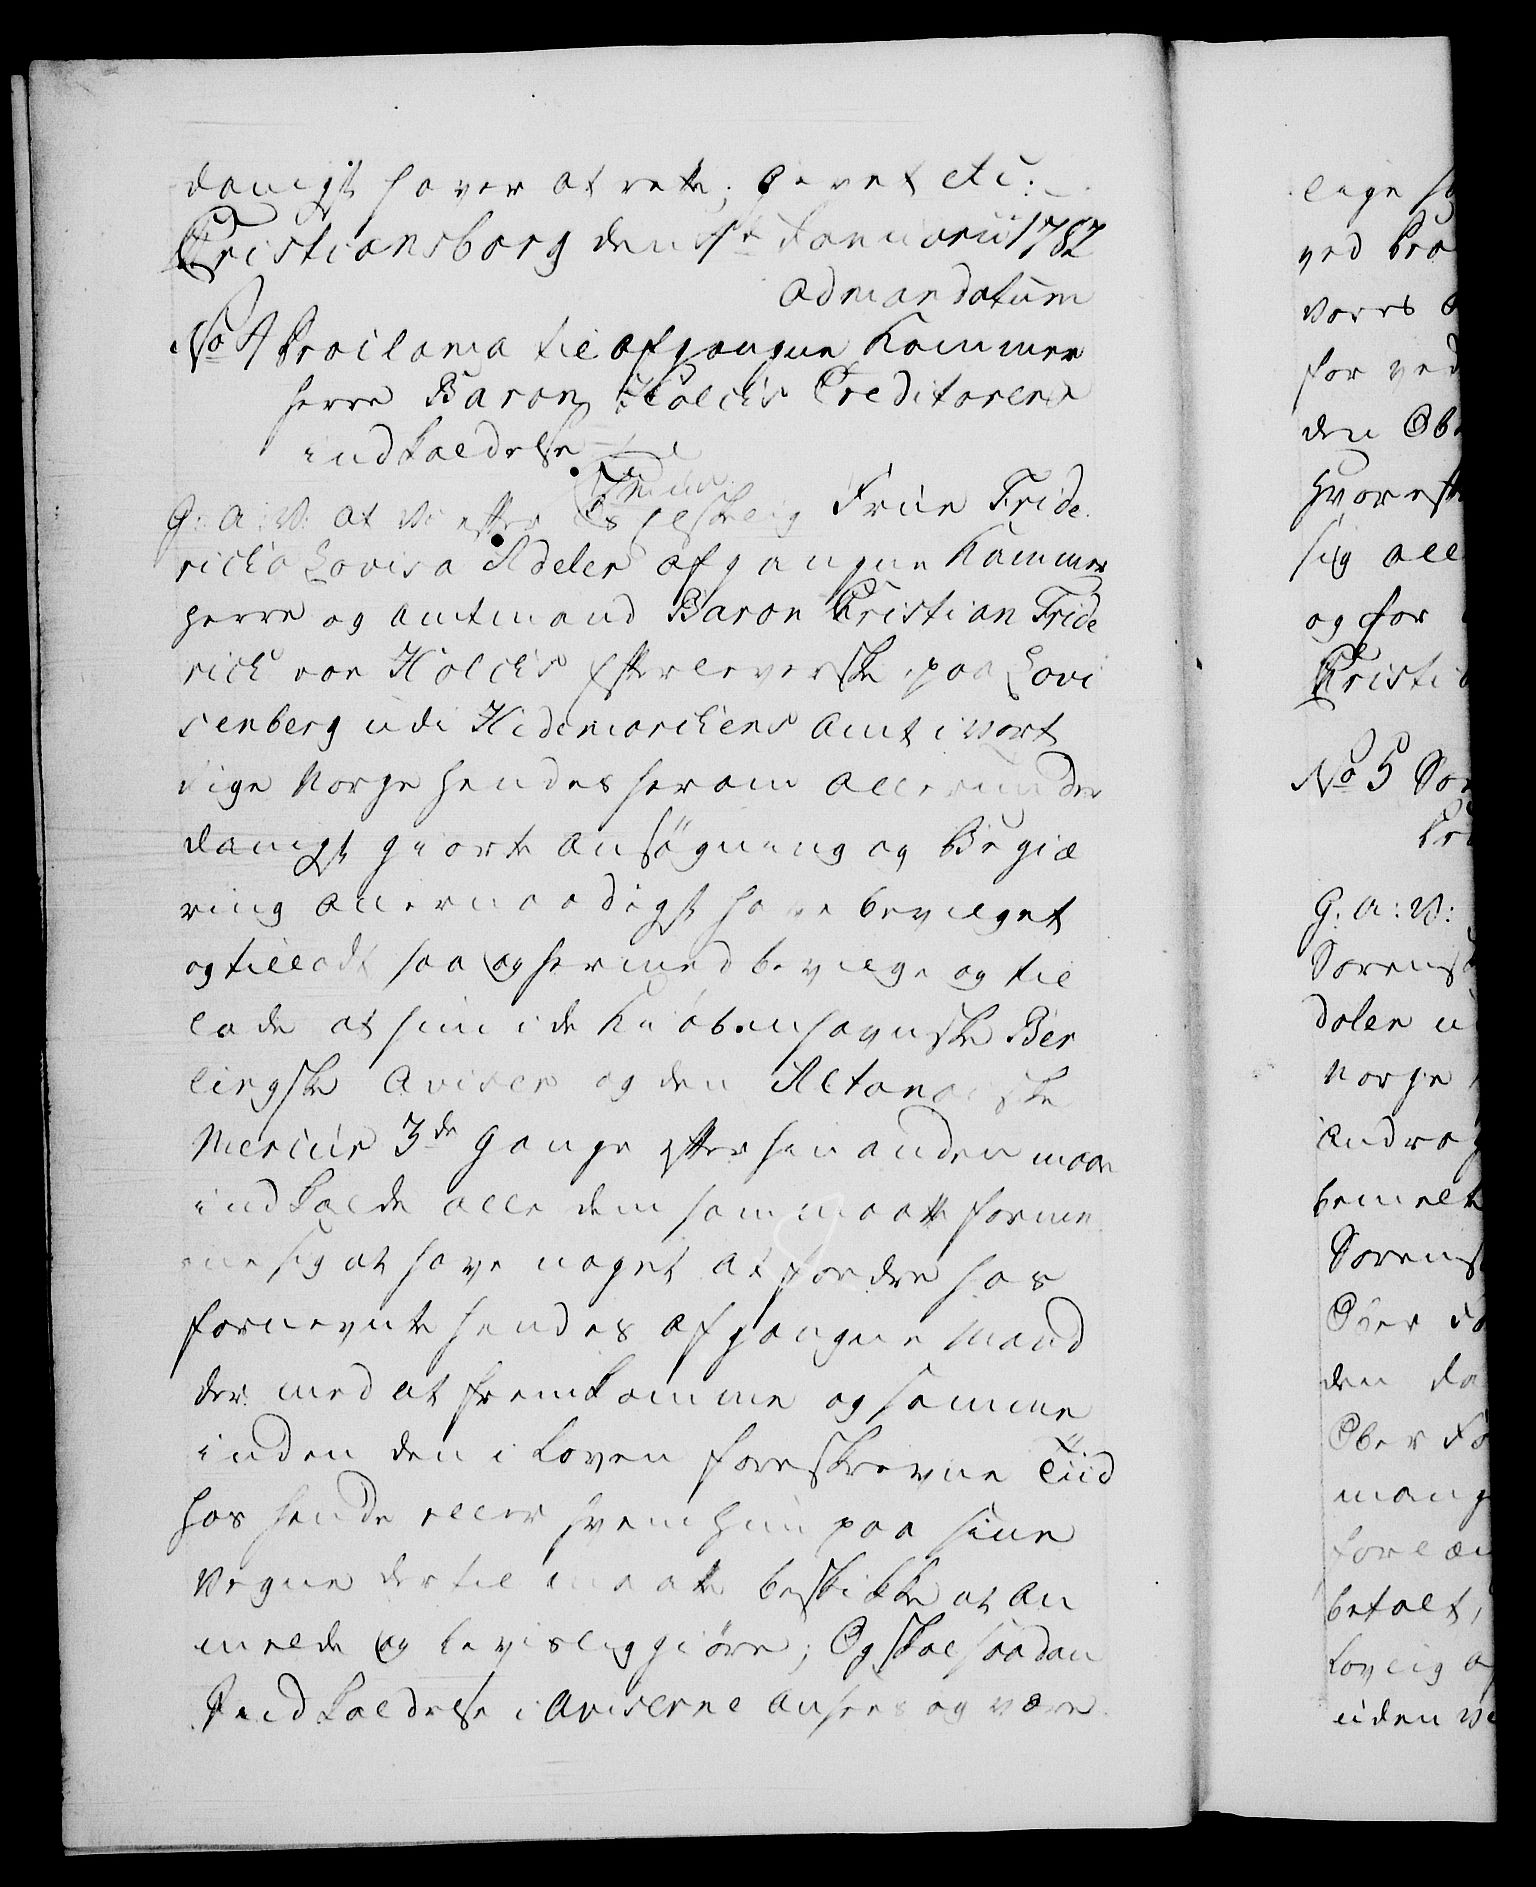 danigst haver at rette; Givet etc:
Christiansborg den 4de Januarii 1782
Ad mandatum
No 4 Proclama til afgangne Kammer
herre Baron Holcks Creditorers
indkaldelse
G: A: V: at Vi efter Os elskelig Frue Fride
richa Lovisa Adeler afgangne Kammer
herre og Amtmand Baron Christian Fride
rich von Holcks Efterleverske paa Lovi
senberg udi Hedemarckens Amt i Vort
Rige Norge hendes herom allerunder
danigst giorte Ansøgning og Begiæ
ring allernaadigst have bevilget
og tilladt saa og hermed bevilge og til
lade at hun i de Kiøbenhavnske Ber
lingske Aviser og den Altonaiske
Mercur 3de Gange efter hinanden maae
indkalde alle dem som maatte forme
ene sig at have noget at fordre hos
fornevnte hendes afgangne Mand
der med at fremkomme og samme
inden den i Loven foreskrevne Tiid
hos hende eller hvem hun paa sine
Vegne dertil maatte beskikke at an
melde og bevisliggiøre; Og skal saadan
Indkaldelse i Aviserne ansees og være
lige
ved
vores
for ved
den Ob
Hvoreft
sig all
og for
Christi
No 5 Sor
G: A: V:
Sorens
dalen u
Norge
andrag
bemelt
Sorens
Ober Fø
den
Ober Fø
mang
betalt,
Lovlig
uden